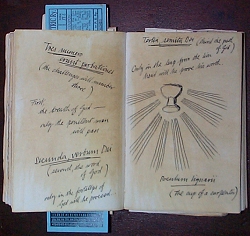 Tres numero
erunt probationes
(the challenges will number
three)
First,
the breath of God —
only the penitent man
will pass
Secunda verbum Dei
(second, the word
of God)
only in the footsteps of
God will he proceed
Tertia, semita Dei (third, the path
of God)
Only in the leap from the lion's
head will he prove his worth.
(The cup of a carpenter)